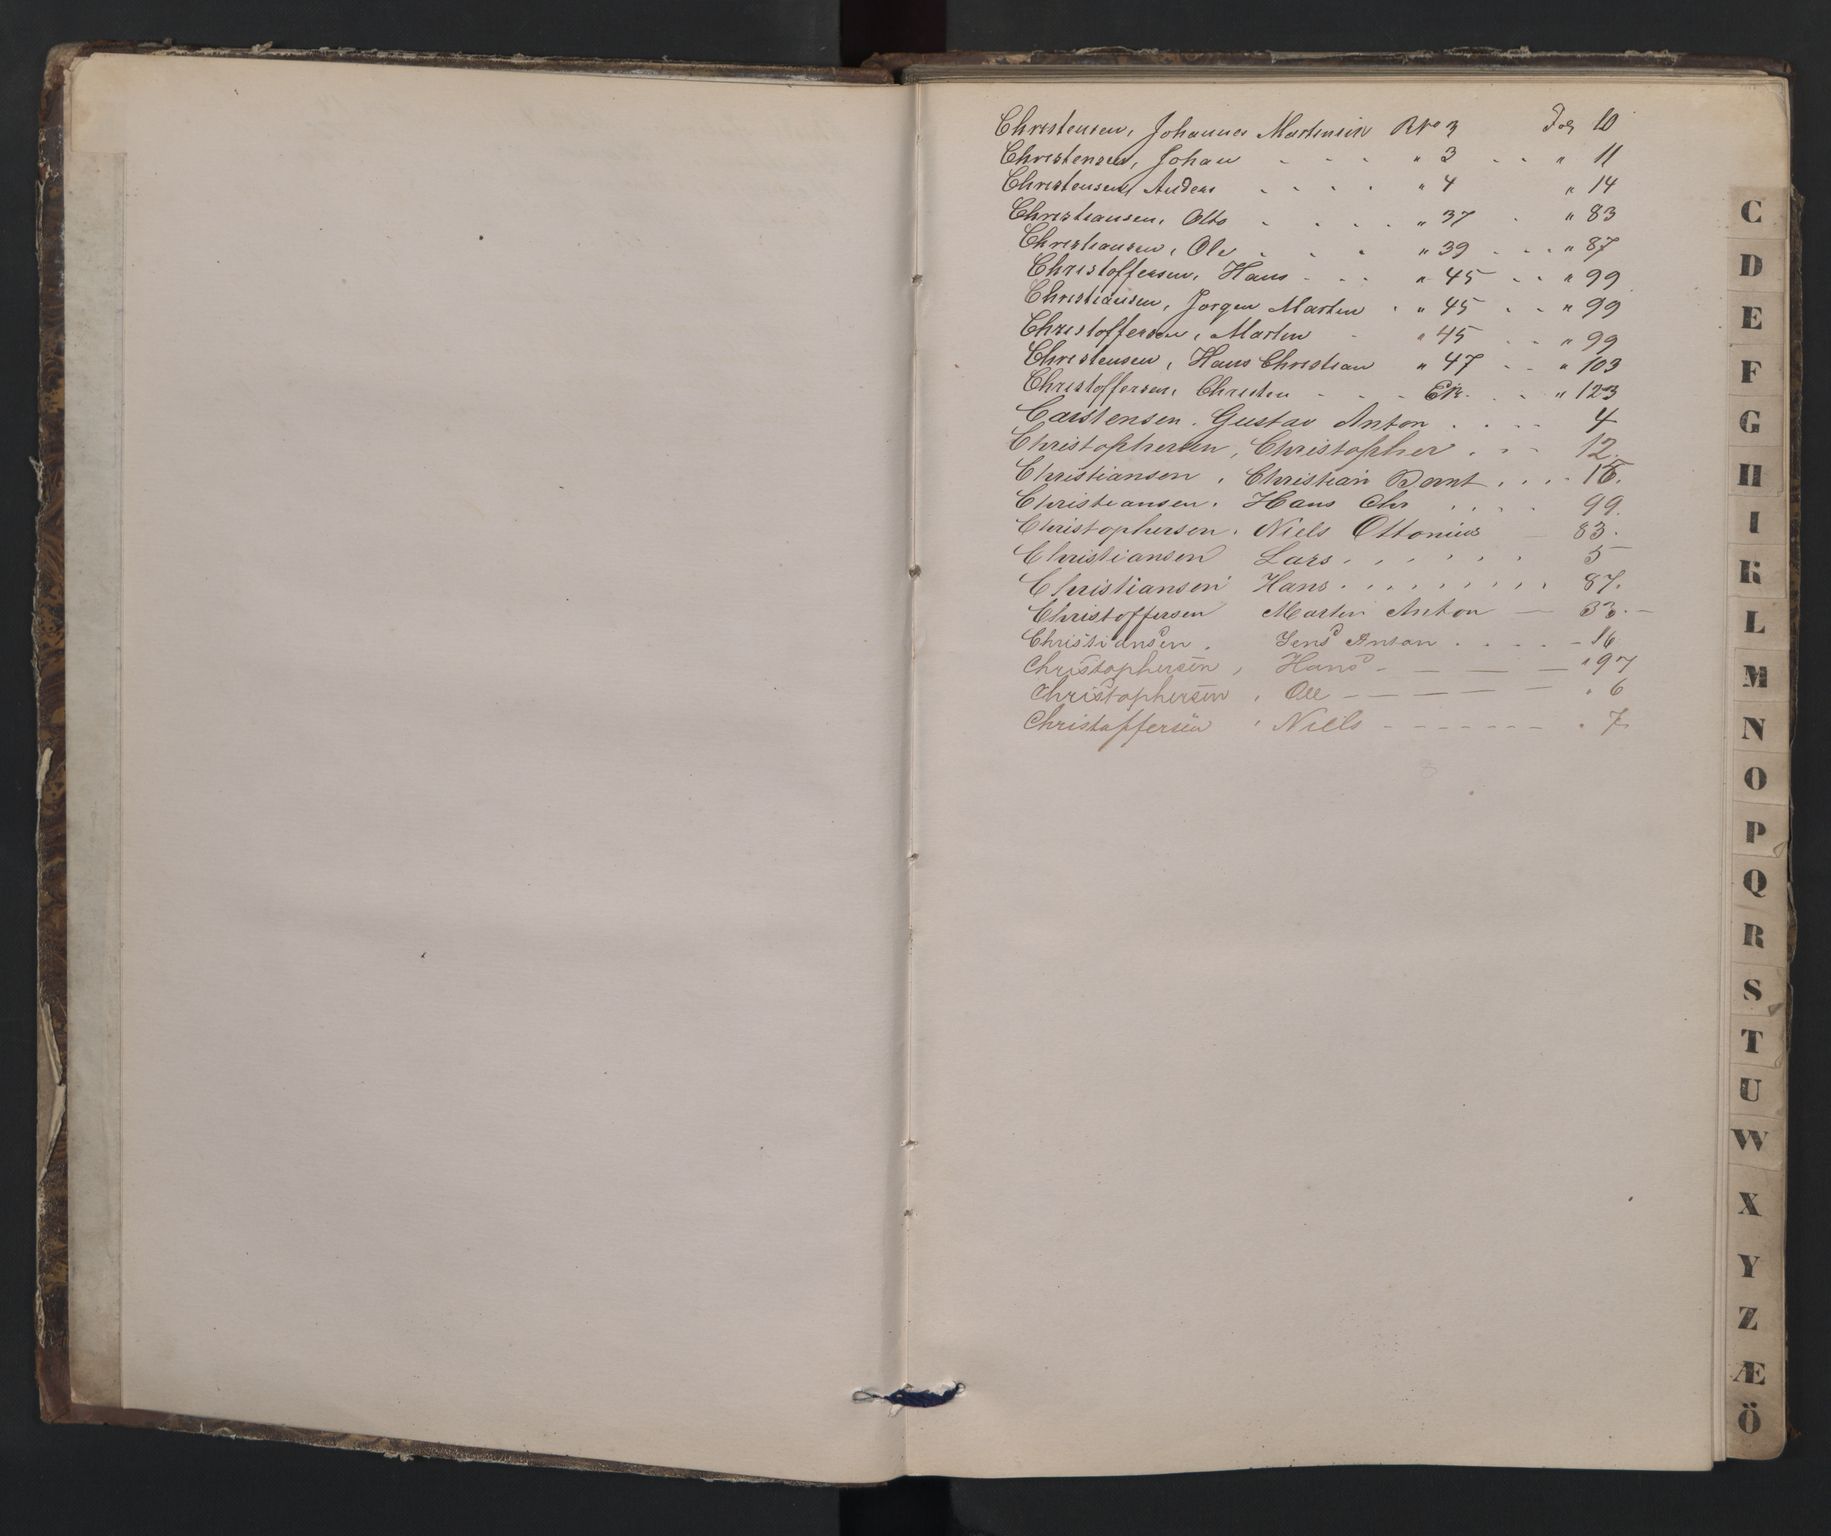 Christensen, Johannes Martinsen RNo 3 Fol 10
Christensen, Johan - - - " 3 - - " 11
Christensen, Anders - - - - " 4 " 14
Christiansen, Otto - - - - " 37 - " 83
Christiansen, Ole - - - " 39 - - - " 87
Christoffersen, Hans - - - " 45 - - " 99
Christiansen, Jorgen Martin - " 45 - - " 99
Christoffersen, Martin - " 45 - - " 99
Christensen, Hans Christian " 47 - - " 103
Christoffersen, Christen - - - - - " 123
Carstensen, Gustav Anton . . - - 4
Christophersen, Christopher . - - 12.
Christiansen, Christian Bernt . . . -
Christiansen, Hans Chr . . . . 99.
Christophersen, Niels Ottonius - 83.
Christiansen Lars . . . . . . 5
Christiansen Hans . . . . . . . . . 87.
Christoffersen Martin Anton — 33. —
Christiansen, Jens Anton . . . . - 16
Christophersen, Hans - — — — — " 97
Christophersen, Ole — — — — — " 6
Christoffersen, Niels - - - - - - - " 7
C
D
E
F
G
H
I
K
L
M
N
O
P
Q
R
S
T
U
W
X
Y
Z
Æ
Ö